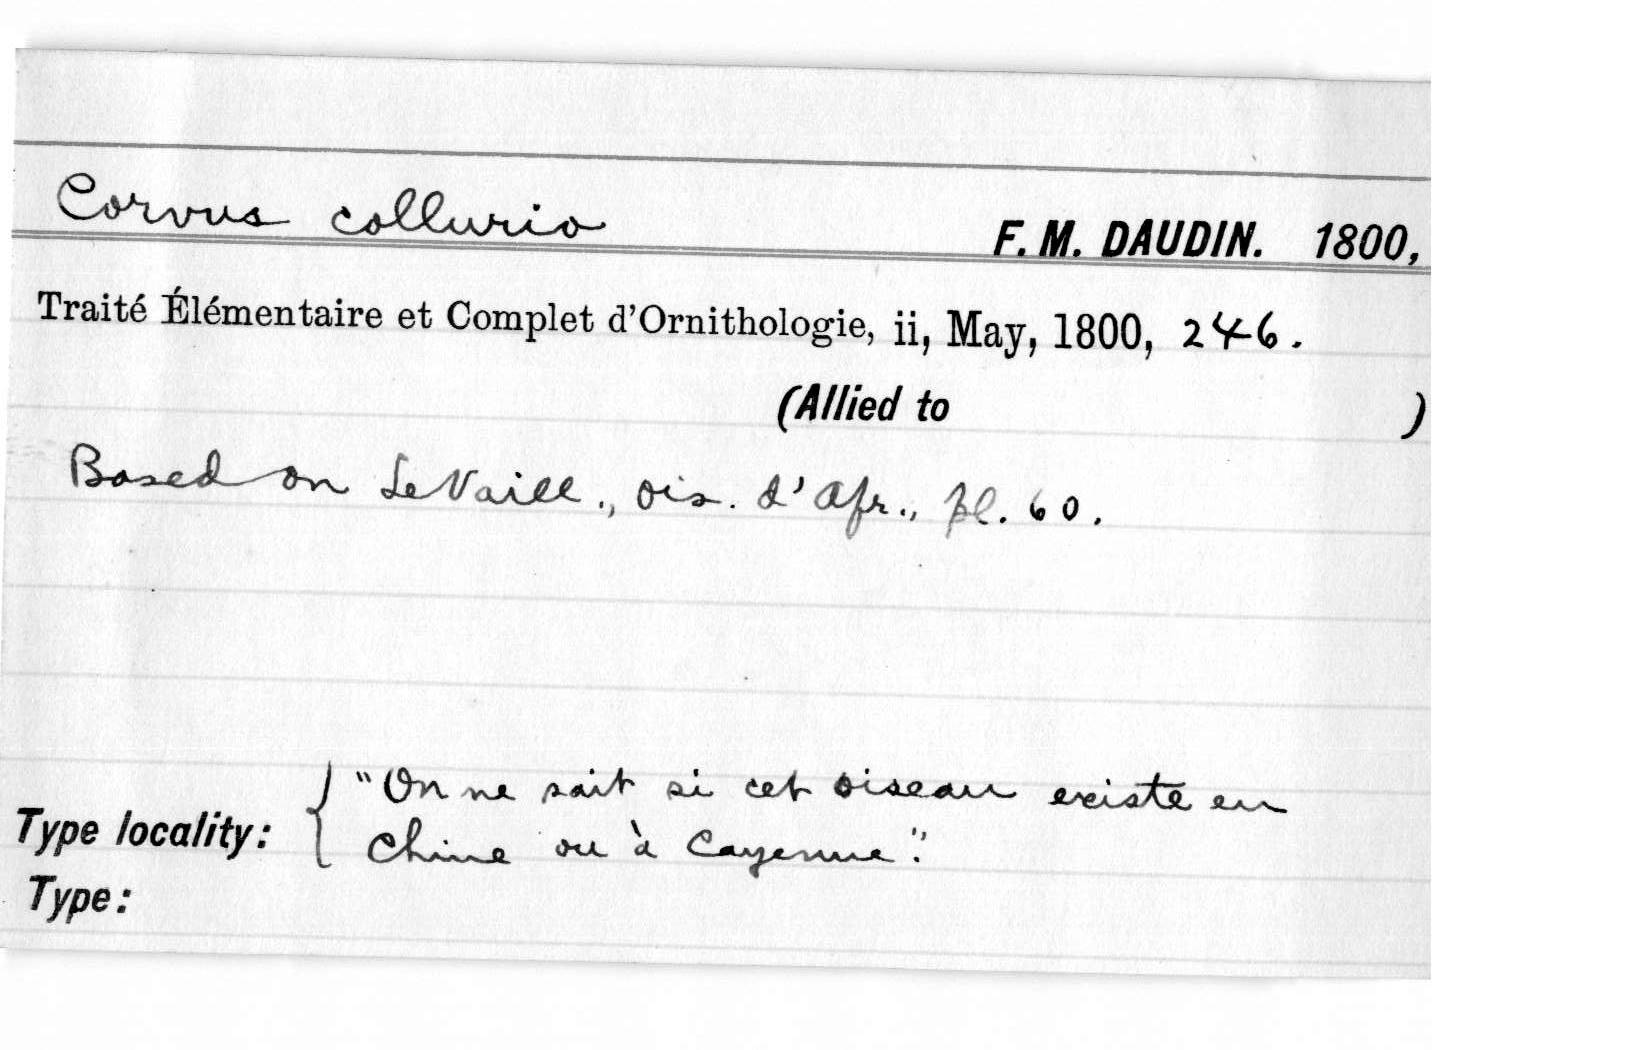 Corvus collurio F. M. DAUDIN. 1800,
Traité Élémentaire et Complet d'Ornithologie, ii, May, 1800, 246.
(Allied to )
Based on LeVaill., Ois. d'Afr., pl. 60.
"On ne sait si cet oiseau existe en
Type locality: { Chine ou à Cayenne".
Type: